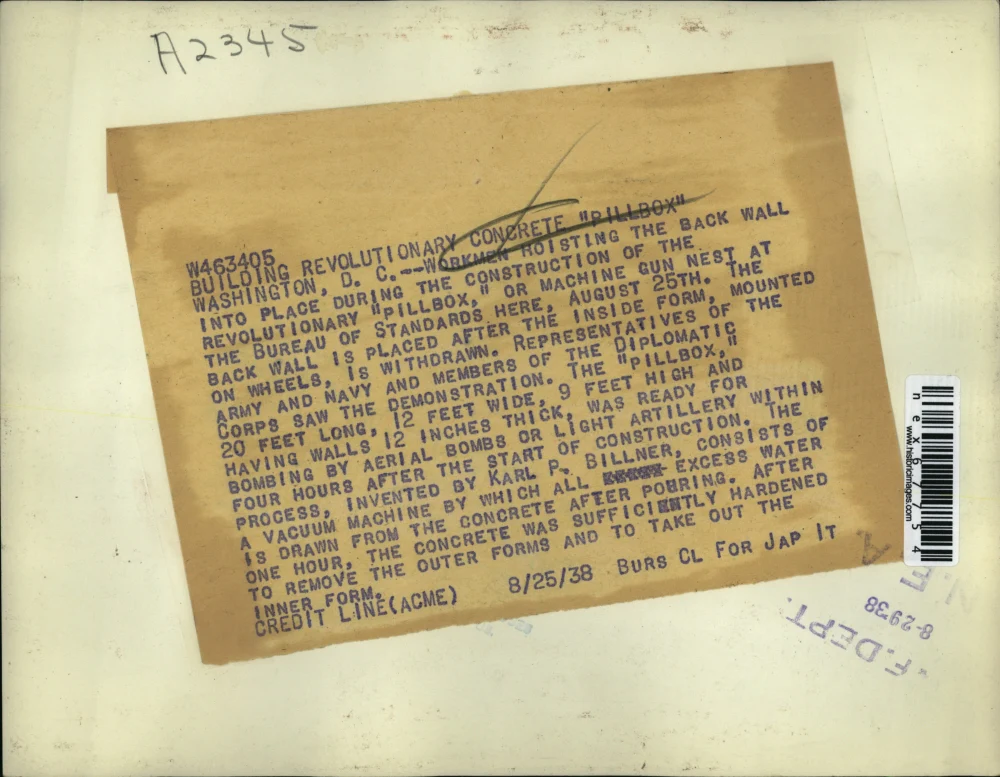 A2345
W463405
BUILDING REVOLUTIONARY CONCRETE "PILLBOX"
WASHINGTON, D. C.--WORKMEN HOISTING THE BACK WALL
INTO PLACE DURING THE CONSTRUCTION OF THE
REVOLUTIONARY "PILLBOX," OR MACHINE GUN NEST AT
THE BUREAU OF STANDARDS HERE, AUGUST 25TH. THE
BACK WALL IS PLACED AFTER THE INSIDE FORM, MOUNTED
ON WHEELS, IS WITHDRAWN. REPRESENTATIVES OF THE
ARMY AND NAVY AND MEMBERS OF THE DIPLOMATIC
CORPS SAW THE DEMONSTRATION. THE "PILLBOX,"
20 FEET LONG, 12 FEET WIDE, 9 FEET HIGH AND
HAVING WALLS 12 INCHES THICK, WAS READY FOR
BOMBING BY AERIAL BOMBS OR LIGHT ARTILLERY WITHIN
FOUR HOURS AFTER THE START OF CONSTRUCTION. THE
PROCESS, INVENTED BY KARL P. BILLNER, CONSISTS OF
A VACUUM MACHINE BY WHICH ALL EXCESS WATER
IS DRAWN FROM THE CONCRETE AFTER POURING. AFTER
ONE HOUR, THE CONCRETE WAS SUFFICIENTLY HARDENED
TO REMOVE THE OUTER FORMS AND TO TAKE OUT THE
INNER FORM.
CREDIT LINE(ACME) 8/25/38 BURS CL FOR JAP IT
nex67754
www.historicimages.com
8-2938
F.DEPT.